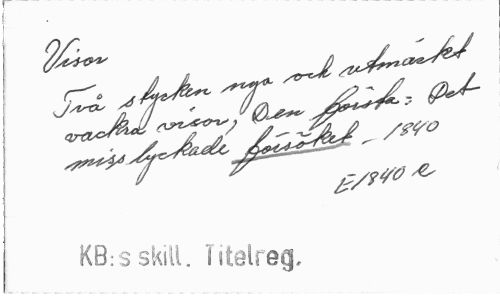 Visor
Två stycken nya och utmärkt
vackra visor, Den första: Det
misslyckade försöket – 1840
E1840 e
KB:s skill. Titelreg.